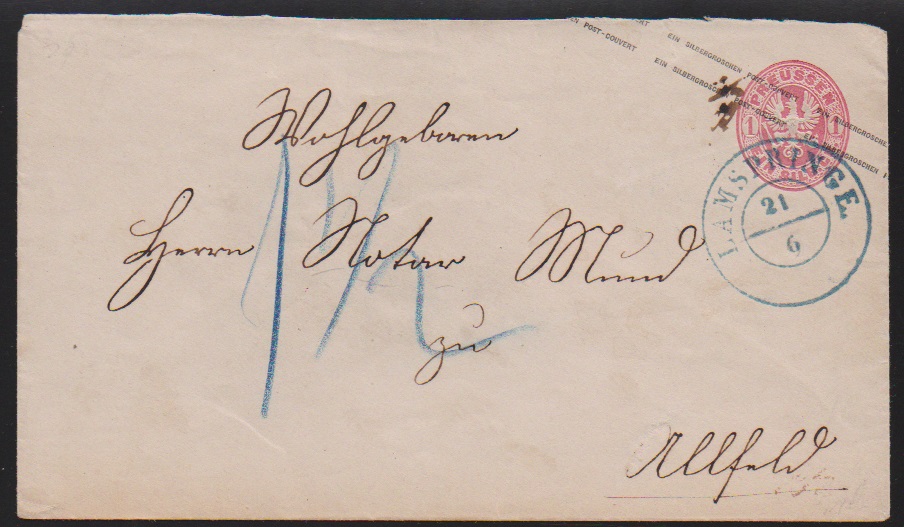 POST-COUVERT
EIN SILBERGROSCHEN POST-COUVERT EIN SILBERGROSCHEN
EIN SILBERGROSCHEN POST-COUVERT EIN SILBERGROSCHEN
PREUSSEN
1 1
LAMSPRINGE
21
6
Wohlgeboren
Herrn Notar Mund
1 1/2
zu
Allfeld